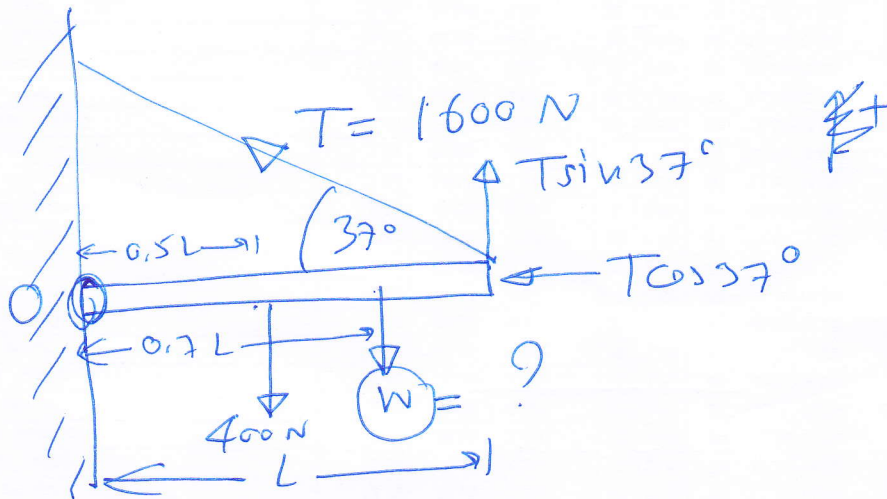 T = 1600 N
+
T sin 37°
37°
0.5 L
O
T cos 37°
0.7 L
W = ?
400 N
L